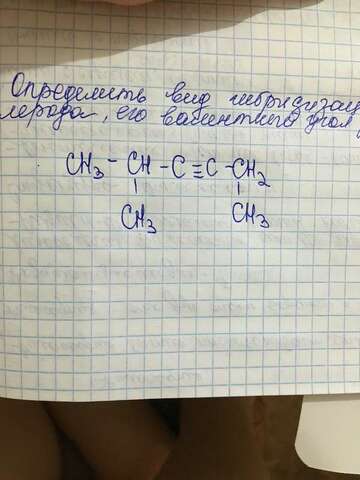 Определить вид гибридизац
лерода, его валентного угол
CH₃ - CH - C ≡ C - CH₂
CH₃ CH₃